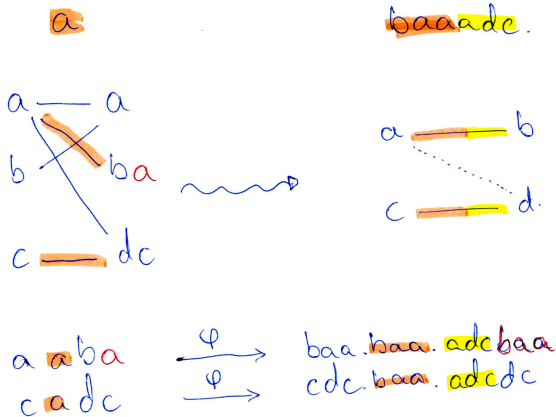 a baaadc.
a a
b ba
c dc
a b
c d.
a a b a φ baa.baa.adcbaa
c a d c φ cdc.baa.adcdc